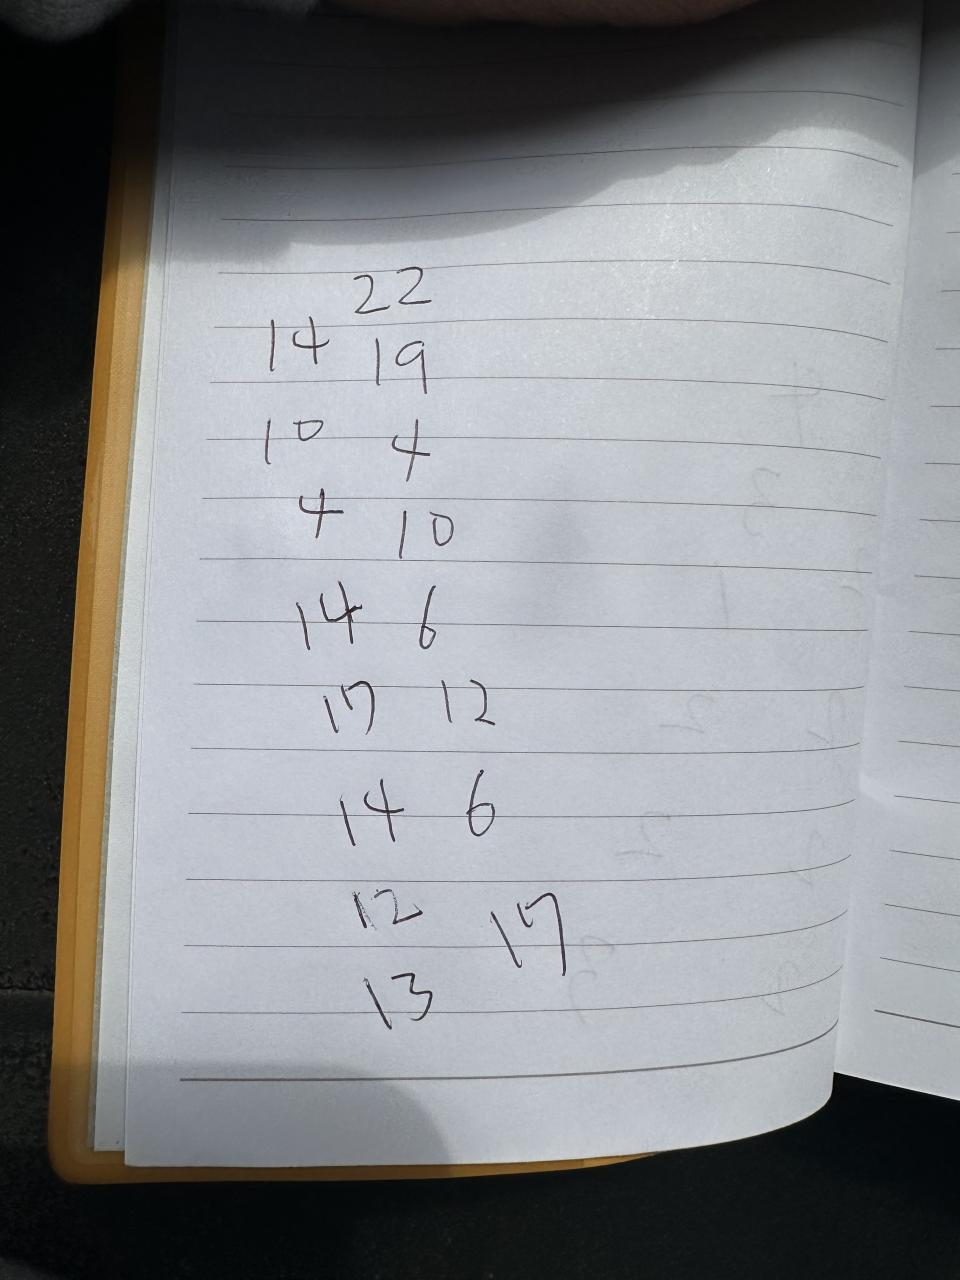 22
14 19
10 4
4 10
14 6
17 12
14 6
12 17
13